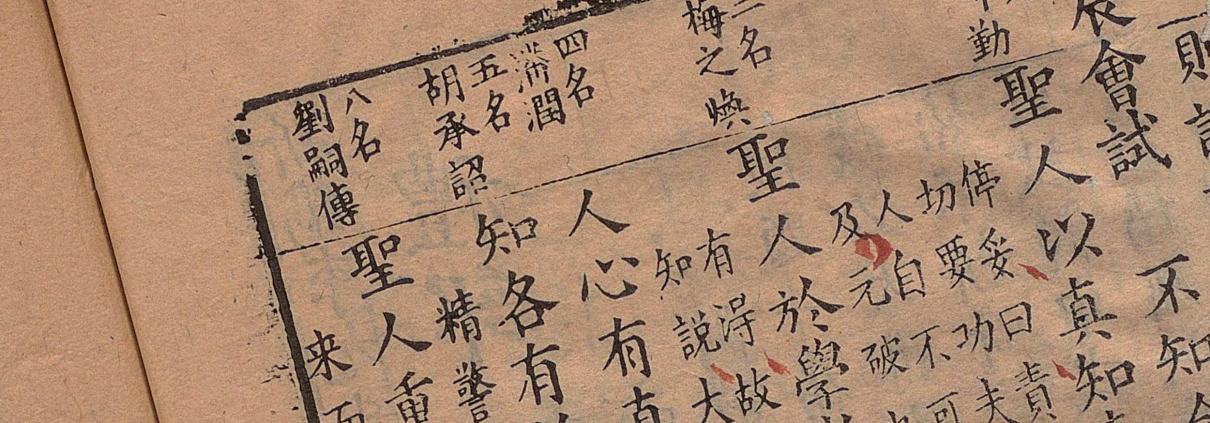 則
不知
會試
勤
聖人以真知
停妥曰責
切要功夫
人自不可
及元破
名
梅之煥
聖人於學
有淂故
知說大
四名
潤
人心有真
五名
胡承詔
知各有
精警
八名
劉嗣傳
聖人重
来而